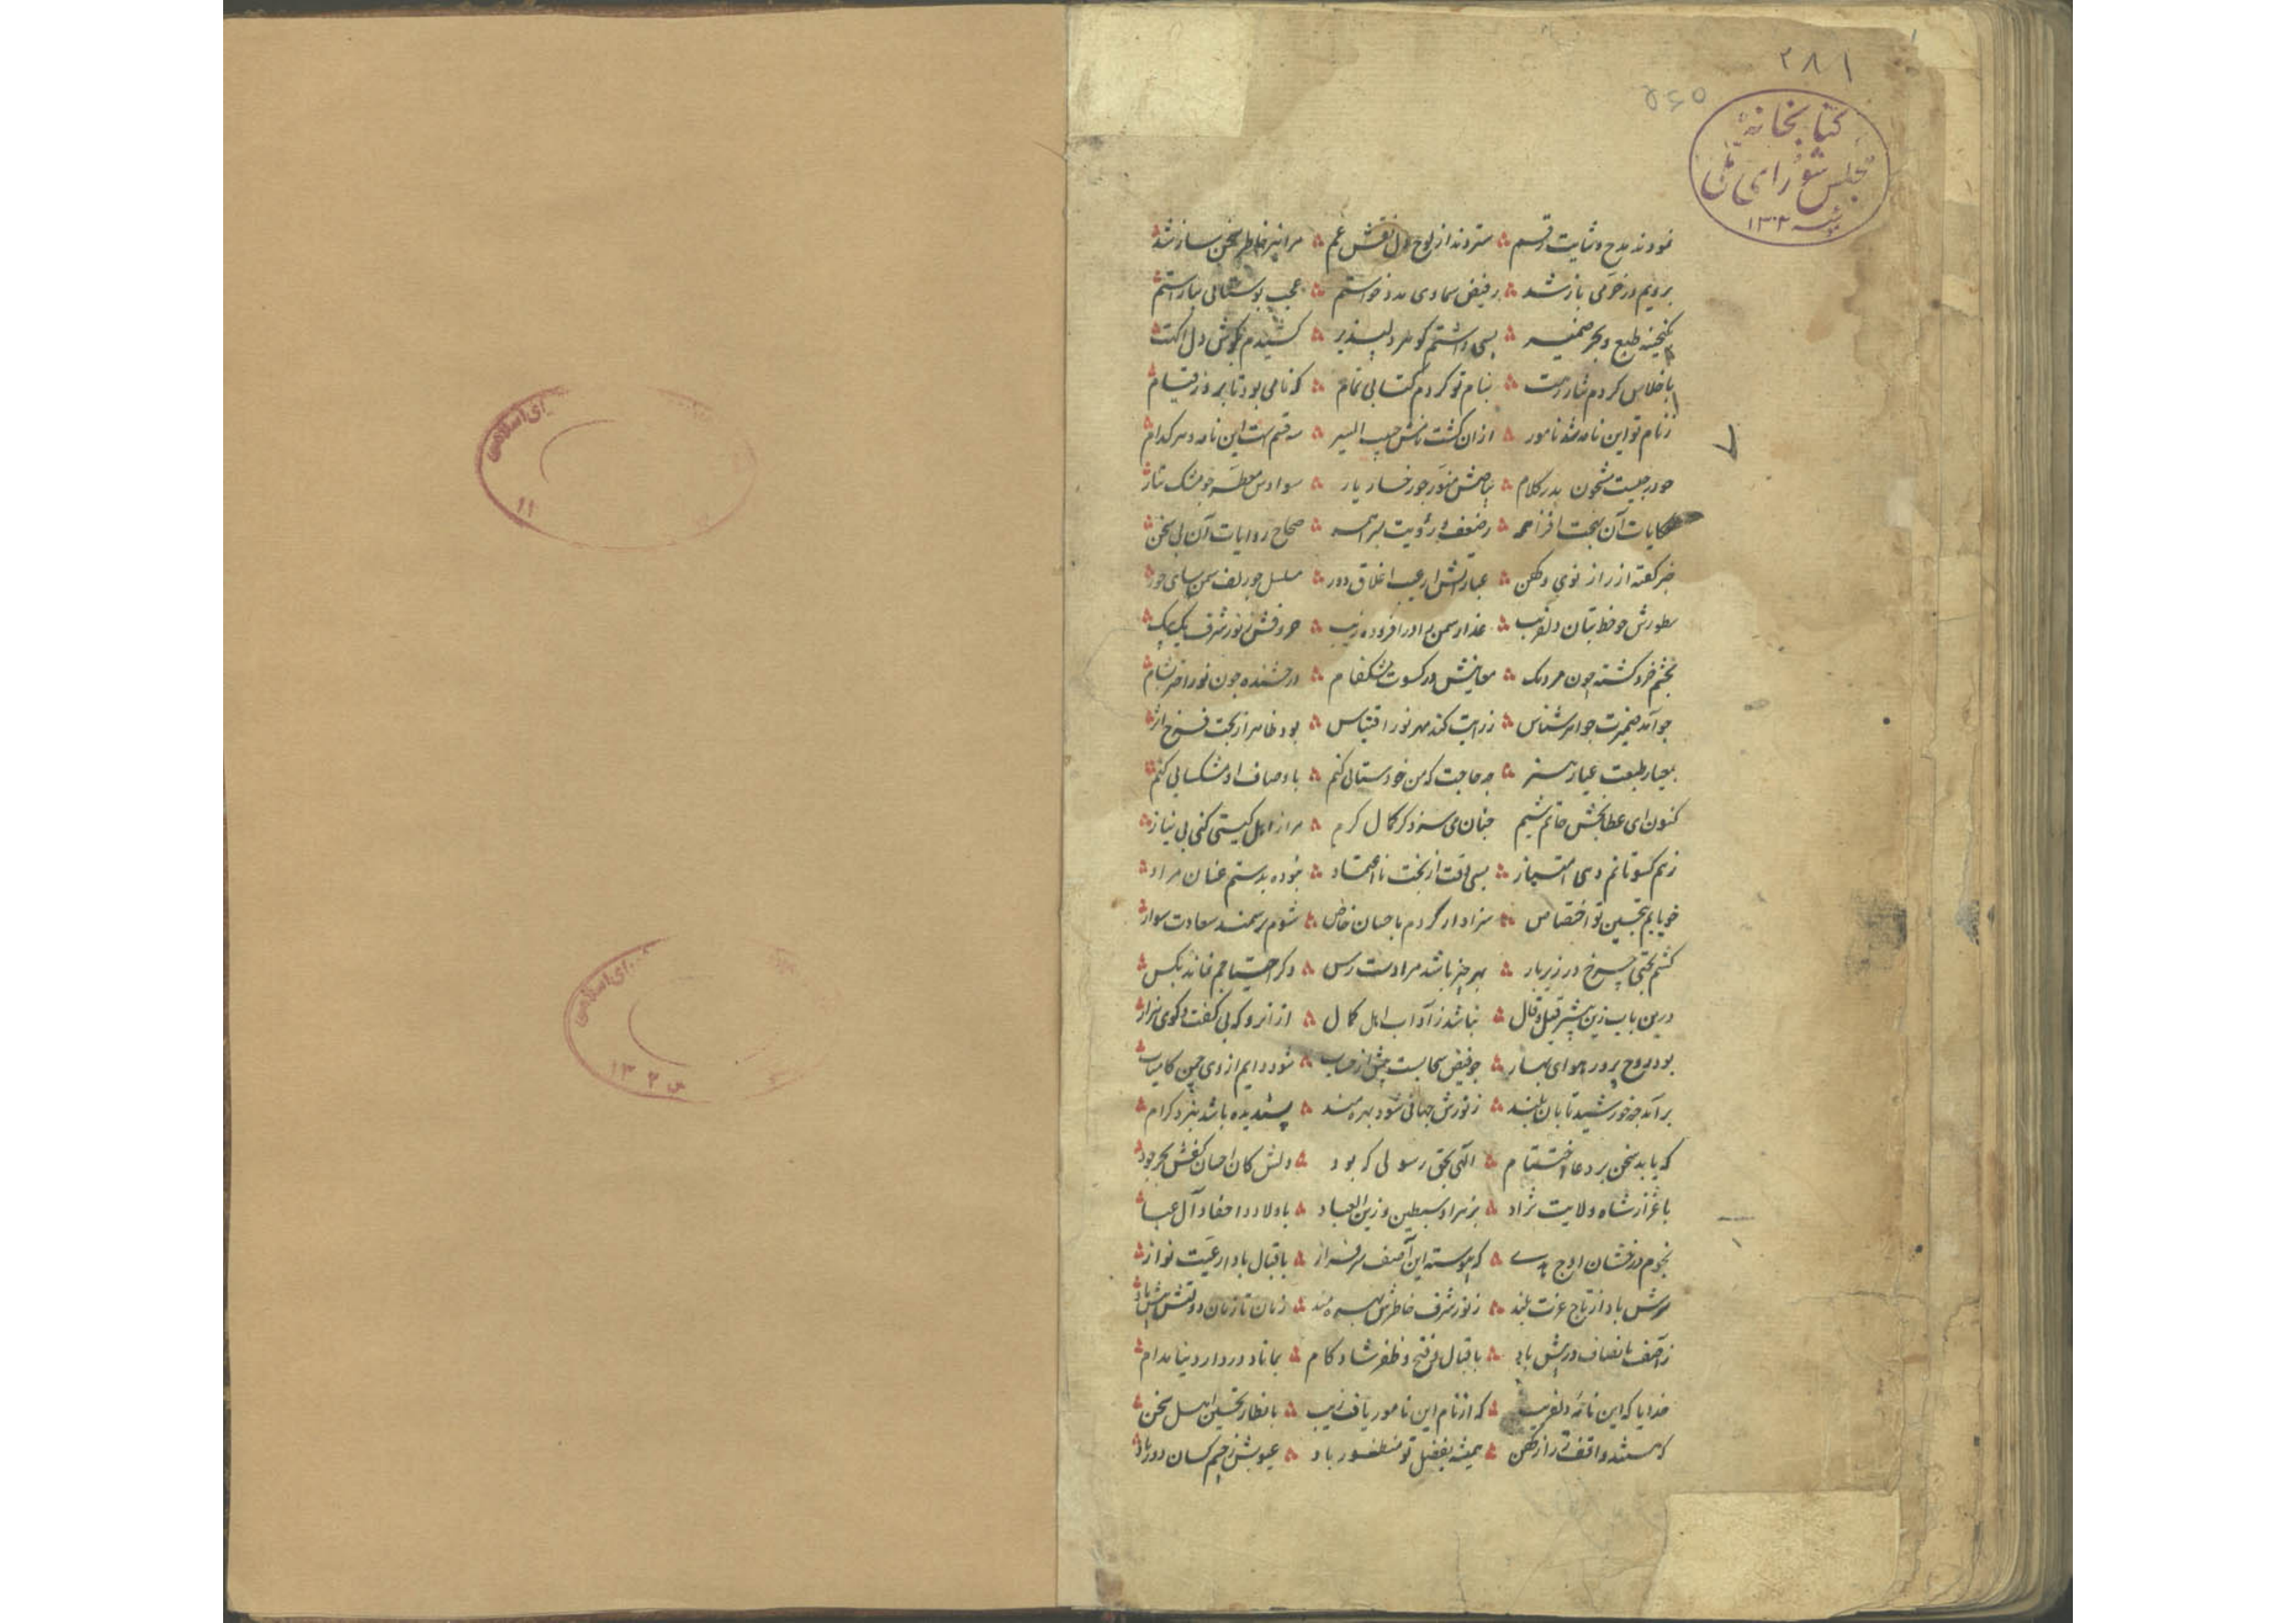 ۲۸۱
۵۶۵
کتابخانهٔ
مجلس شورای ملی
۱۳۰۲
نمودند مدح و ثنایت رقم ستردند از لوح دل نقش غم مرا نیز خاطر سخن ساز شد
برویم در خرمی باز شد ز فیض سماوی مدد خواستم عجب بوستانی بیاراستم
ز گنجینه طبع و بحر ضمیر بسی داشتم گوهر دلپذیر کشیدم بگوش دل
باخلاص کردم نثار رهت بنام تو کردم کتابی تمام که نامی بود تا بروز قیام
ز نام تو این نامه شد نامور ازان گشت نامش حبیب السیر سه قسم است این نامه و هر کدام
چو درجیست مشحون بدر کلام بیاضش منور چو رخسار یار سوادش معطر چو مشک تتار
حکایات آن بهجت افزا همه ز ضعف رویت مبرا همه صحاح روایات آن بی سخن
خبر گفته از راز نوی و کهن عباراتش از عیب اغلاق دور مسلسل چو زلف سمن سای حور
سطورش چو خط بتان دلفریب عذار سمن را در افزوده زیب حروفش ز نور شرف یک بیک
بچشم خرد گشته چون مردمک معانیش در کسوت مشکفام درخشنده چون نور اختر بشام
چو آمد ضمیرت جواهر شناس ز رایت کند مهر نور اقتباس بود ظاهر از بخت فرخ اثر
بمعیار طبعت عیار هنر چه حاجت که من خودستائی کنم باوصاف او مشکسائی کنم
کنون ای عطابخش حاتم شیم چنان می سزد کز کمال کرم مرا ز اهل گیتی کنی بی نیاز
ز هم کسوتانم دهی امتیاز بسی لطفت از بخت نا اعتماد نموده بدستم عنان مراد
چو یابم بتحسین تو اختصاص سزاوار گردم باحسان خاص شوم بر سمند سعادت سوار
کشم بختی چرخ در زیر بار بهر چیز باشد مرا دست رس دگر احتیاجم نماند بکس
درین باب زین بیشتر قیل و قال نباشد ز آداب اهل کمال از انرو که بی گفت و گوی هزار
بود روح پرور هوای بهار چو فیض سحابست بیش از حساب شود دایم از وی چمن کامیاب
برآمد چو خورشید تابان بلند ز نورش جهانی شود بهره مند پسندیده باشد بنزد کرام
که یابد سخن بر دعا اختتام الهی بحق رسولی که بود دلش کان احسان کفش بحر جود
باعزاز شاه ولایت نژاد بزهرا و سبطین و زین العباد باولاد و احفاد آل عبا
نجوم درخشان اوج هدی که پیوسته این آصف سرفراز باقبال باد رعیت نواز
سرش باد از تاج عزت بلند ز نور شرف خاطرش بهره مند زمان تا زمان دولتش بیش باد
ز آصف بانصاف در پیش باد باقبال و فتح و ظفر شادکام بماناد در دار دنیا مدام
خدایا که این نامهٔ دلفریب که از نام این نامور یافت زیب بانظار تحسین اهل سخن
که هستند واقف ز راز کهن همیشه بفضل تو منظور باد عیوبش ز چشم کسان دور باد